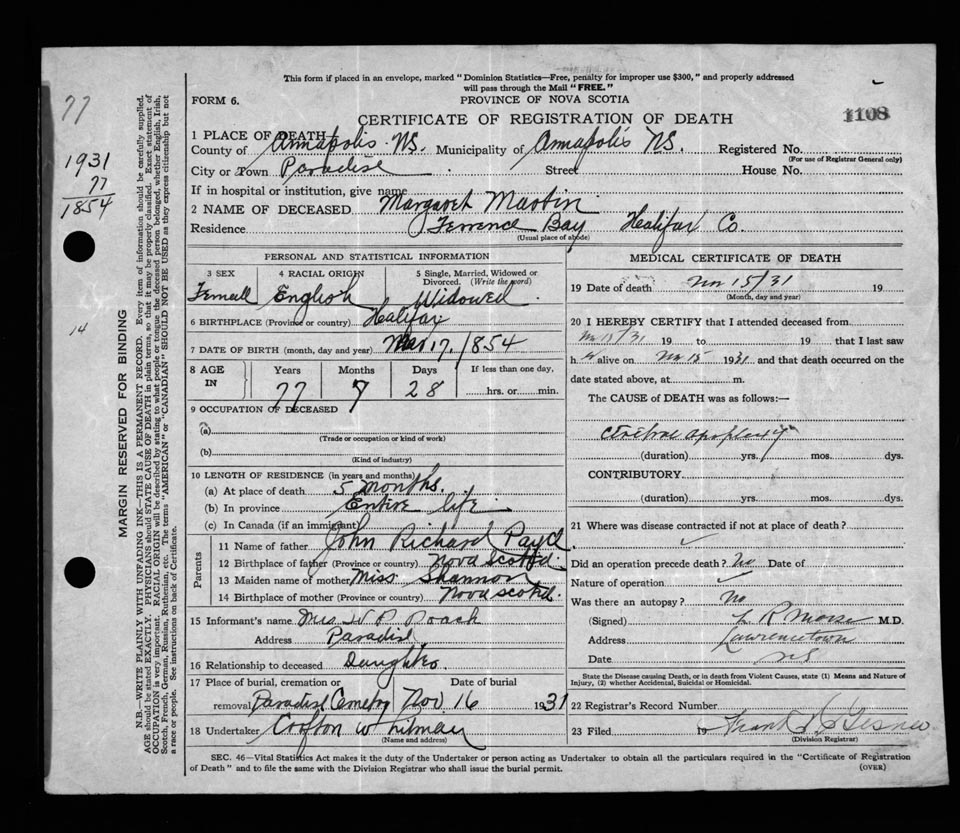 This form if placed in an envelope, marked "Dominion Statistics—Free, penalty for improper use $300," and properly addressed
will pass through the Mail "FREE."
FORM 6.
PROVINCE OF NOVA SCOTIA
1108
CERTIFICATE OF REGISTRATION OF DEATH
77
1931
77
1854
14
MARGIN RESERVED FOR BINDING
N.B.—WRITE PLAINLY WITH UNFADING INK—THIS IS A PERMANENT RECORD. Every item of information should be carefully supplied.
AGE should be stated EXACTLY. PHYSICIANS should STATE CAUSE OF DEATH in plain terms, so that it may be properly classified. Exact statement of
OCCUPATION is very important. RACIAL ORIGIN will be described by stating to what people or tongue the deceased person belonged, whether English, Irish,
Scotch, French, German, Russian, Ruthenian, etc. The terms "AMERICAN" or "CANADIAN" SHOULD NOT BE USED as they express citizenship but not
a race or people. See instructions on back of Certificate.
1 PLACE OF DEATH
County of Annapolis NS. Municipality of Annapolis NS. Registered No.
(For use of Registrar General only)
City or Town Paradise Street House No.
If in hospital or institution, give name
2 NAME OF DECEASED Margaret Martin
Residence Terrence Bay Halifax Co.
(Usual place of abode)
PERSONAL AND STATISTICAL INFORMATION
3 SEX 4 RACIAL ORIGIN 5 Single, Married, Widowed or Divorced. (Write the word)
Femall English Widowed
6 BIRTHPLACE (Province or country) Halifax
7 DATE OF BIRTH (month, day and year) Mar 17, 1854
8 AGE IN Years Months Days If less than one day,
77 7 28 hrs. or min.
9 OCCUPATION OF DECEASED
(a)
(Trade or occupation or kind of work)
(b)
(Kind of industry)
10 LENGTH OF RESIDENCE (in years and months)
(a) At place of death 5 months.
(b) In province Entire life
(c) In Canada (if an immigrant)
Parents
11 Name of father John Richard
12 Birthplace of father (Province or country) Nova Scotia
13 Maiden name of mother Miss Shannon
14 Birthplace of mother (Province or country) Nova Scotia
15 Informant's name Mrs W P Roach
Address Paradise
16 Relationship to deceased Daughter.
17 Place of burial, cremation or removal Date of burial
Paradise Cemetry Nov 16 1931
18 Undertaker Crofton Whitman
(Name and address)
MEDICAL CERTIFICATE OF DEATH
19 Date of death Nov 15/31 19
(Month, day and year)
20 I HEREBY CERTIFY that I attended deceased from
Nov 15/31 19 to 19 that I last saw
h er alive on Nov 15 1931 and that death occurred on the
date stated above, at m.
The CAUSE of DEATH was as follows:—
Cerebral apoplexy
(duration) yrs. mos. dys.
CONTRIBUTORY.
(duration) yrs. mos. dys.
21 Where was disease contracted if not at place of death?
Did an operation precede death? No Date of
Nature of operation
Was there an autopsy? No
(Signed) L R Morse M.D.
Address Lawrencetown
Date NS
State the Disease causing Death, or in death from Violent Causes, state (1) Means and Nature of
Injury, (2) whether Accidental, Suicidal or Homicidal.
22 Registrar's Record Number
23 Filed 19 Frank Gesner
(Division Registrar)
SEC. 46—Vital Statistics Act makes it the duty of the Undertaker or person acting as Undertaker to obtain all the particulars required in the "Certificate of Registration
of Death" and to file the same with the Division Registrar who shall issue the burial permit.
(OVER)